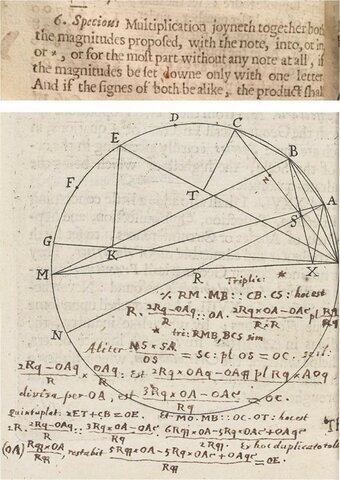 6. Specious Multiplication joyneth together both
the magnitudes proposed, with the note, into, or in
or ×, or for the most part without any note at all, if
the magnitudes be set downe only with one letter
And if the signes of both be alike, the product shal
D
C
E
B
N
F
A
T
S
G
K
X
M
R
Triplic: *
N
RM. MB :: CB. CS: hoc est
R. 2Rq-OAq/R :: OA. 2Rq×OA-OAc/R×R pl
* tri: RMB, BCS sim
Aliter MS×SA/OS = SC: pl OS = OC. scil:
2Rq-OAq/Rq × OAq/Rq: Est 2Rq×OAq-OAqq pl Rq×AOq
divisa per OA, est 3Rq×OA-OAc/Rq = OC.
Quintuplat: 2ET+CB=OE. Et MO. MB :: OC. OT: hoc est
2R. 2Rq-OAq/R :: 3Rq×OA-OAc/Rq 6Rqq×OA-5Rq×OAc+OAqc/2Rqq. Ex hoc duplicato tolle
(OA) Rqq×OA/Rqq, restabit 5Rqq×OA-5Rq×OAc+OAqc/Rqq = OE.